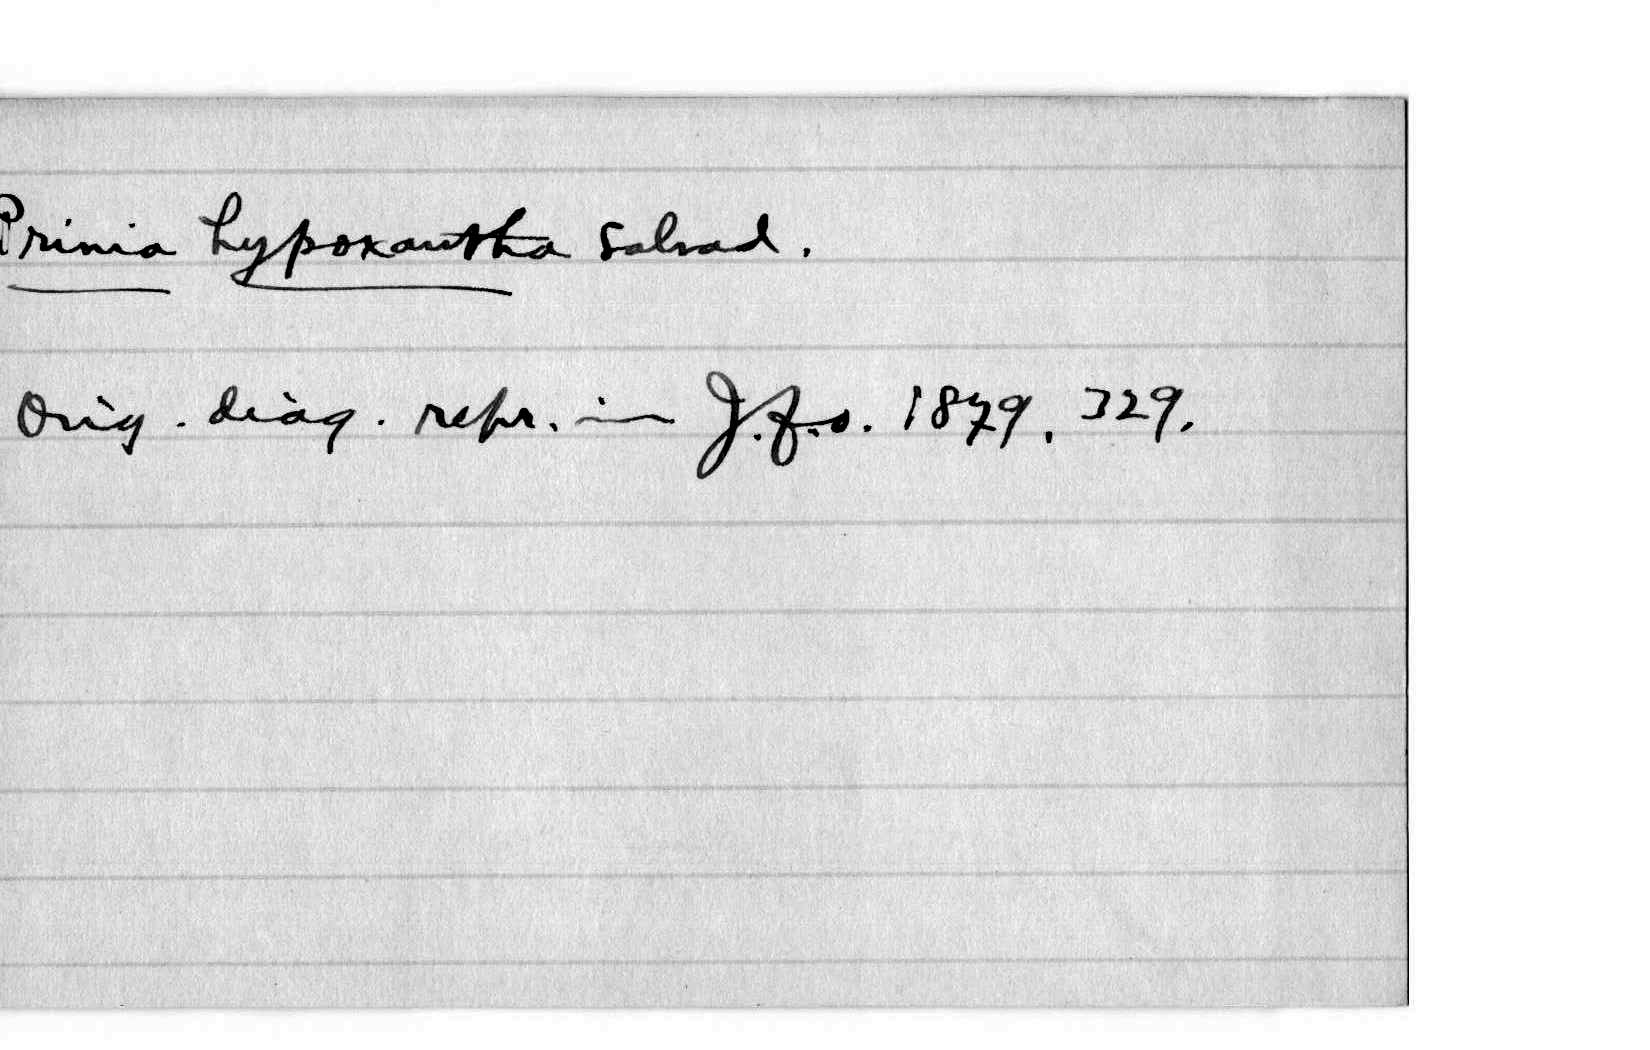 Prinia hypoxantha Salvad.
Orig. diag. repr. in J.f.O. 1879. 329.